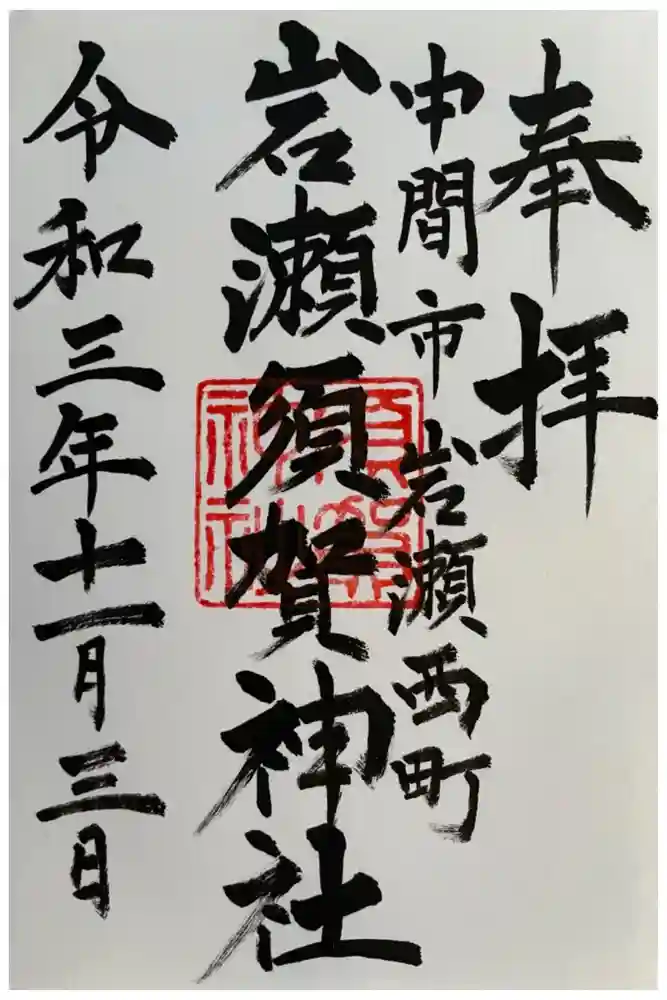 奉拝
中間市岩瀬西町
岩瀬須賀神社
須賀
神社
令和三年十一月三日